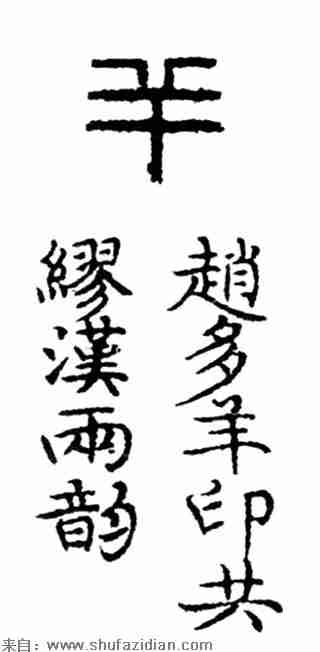 羊
趙多羊印共
繆漢兩韵
来自：www.shufazidian.com